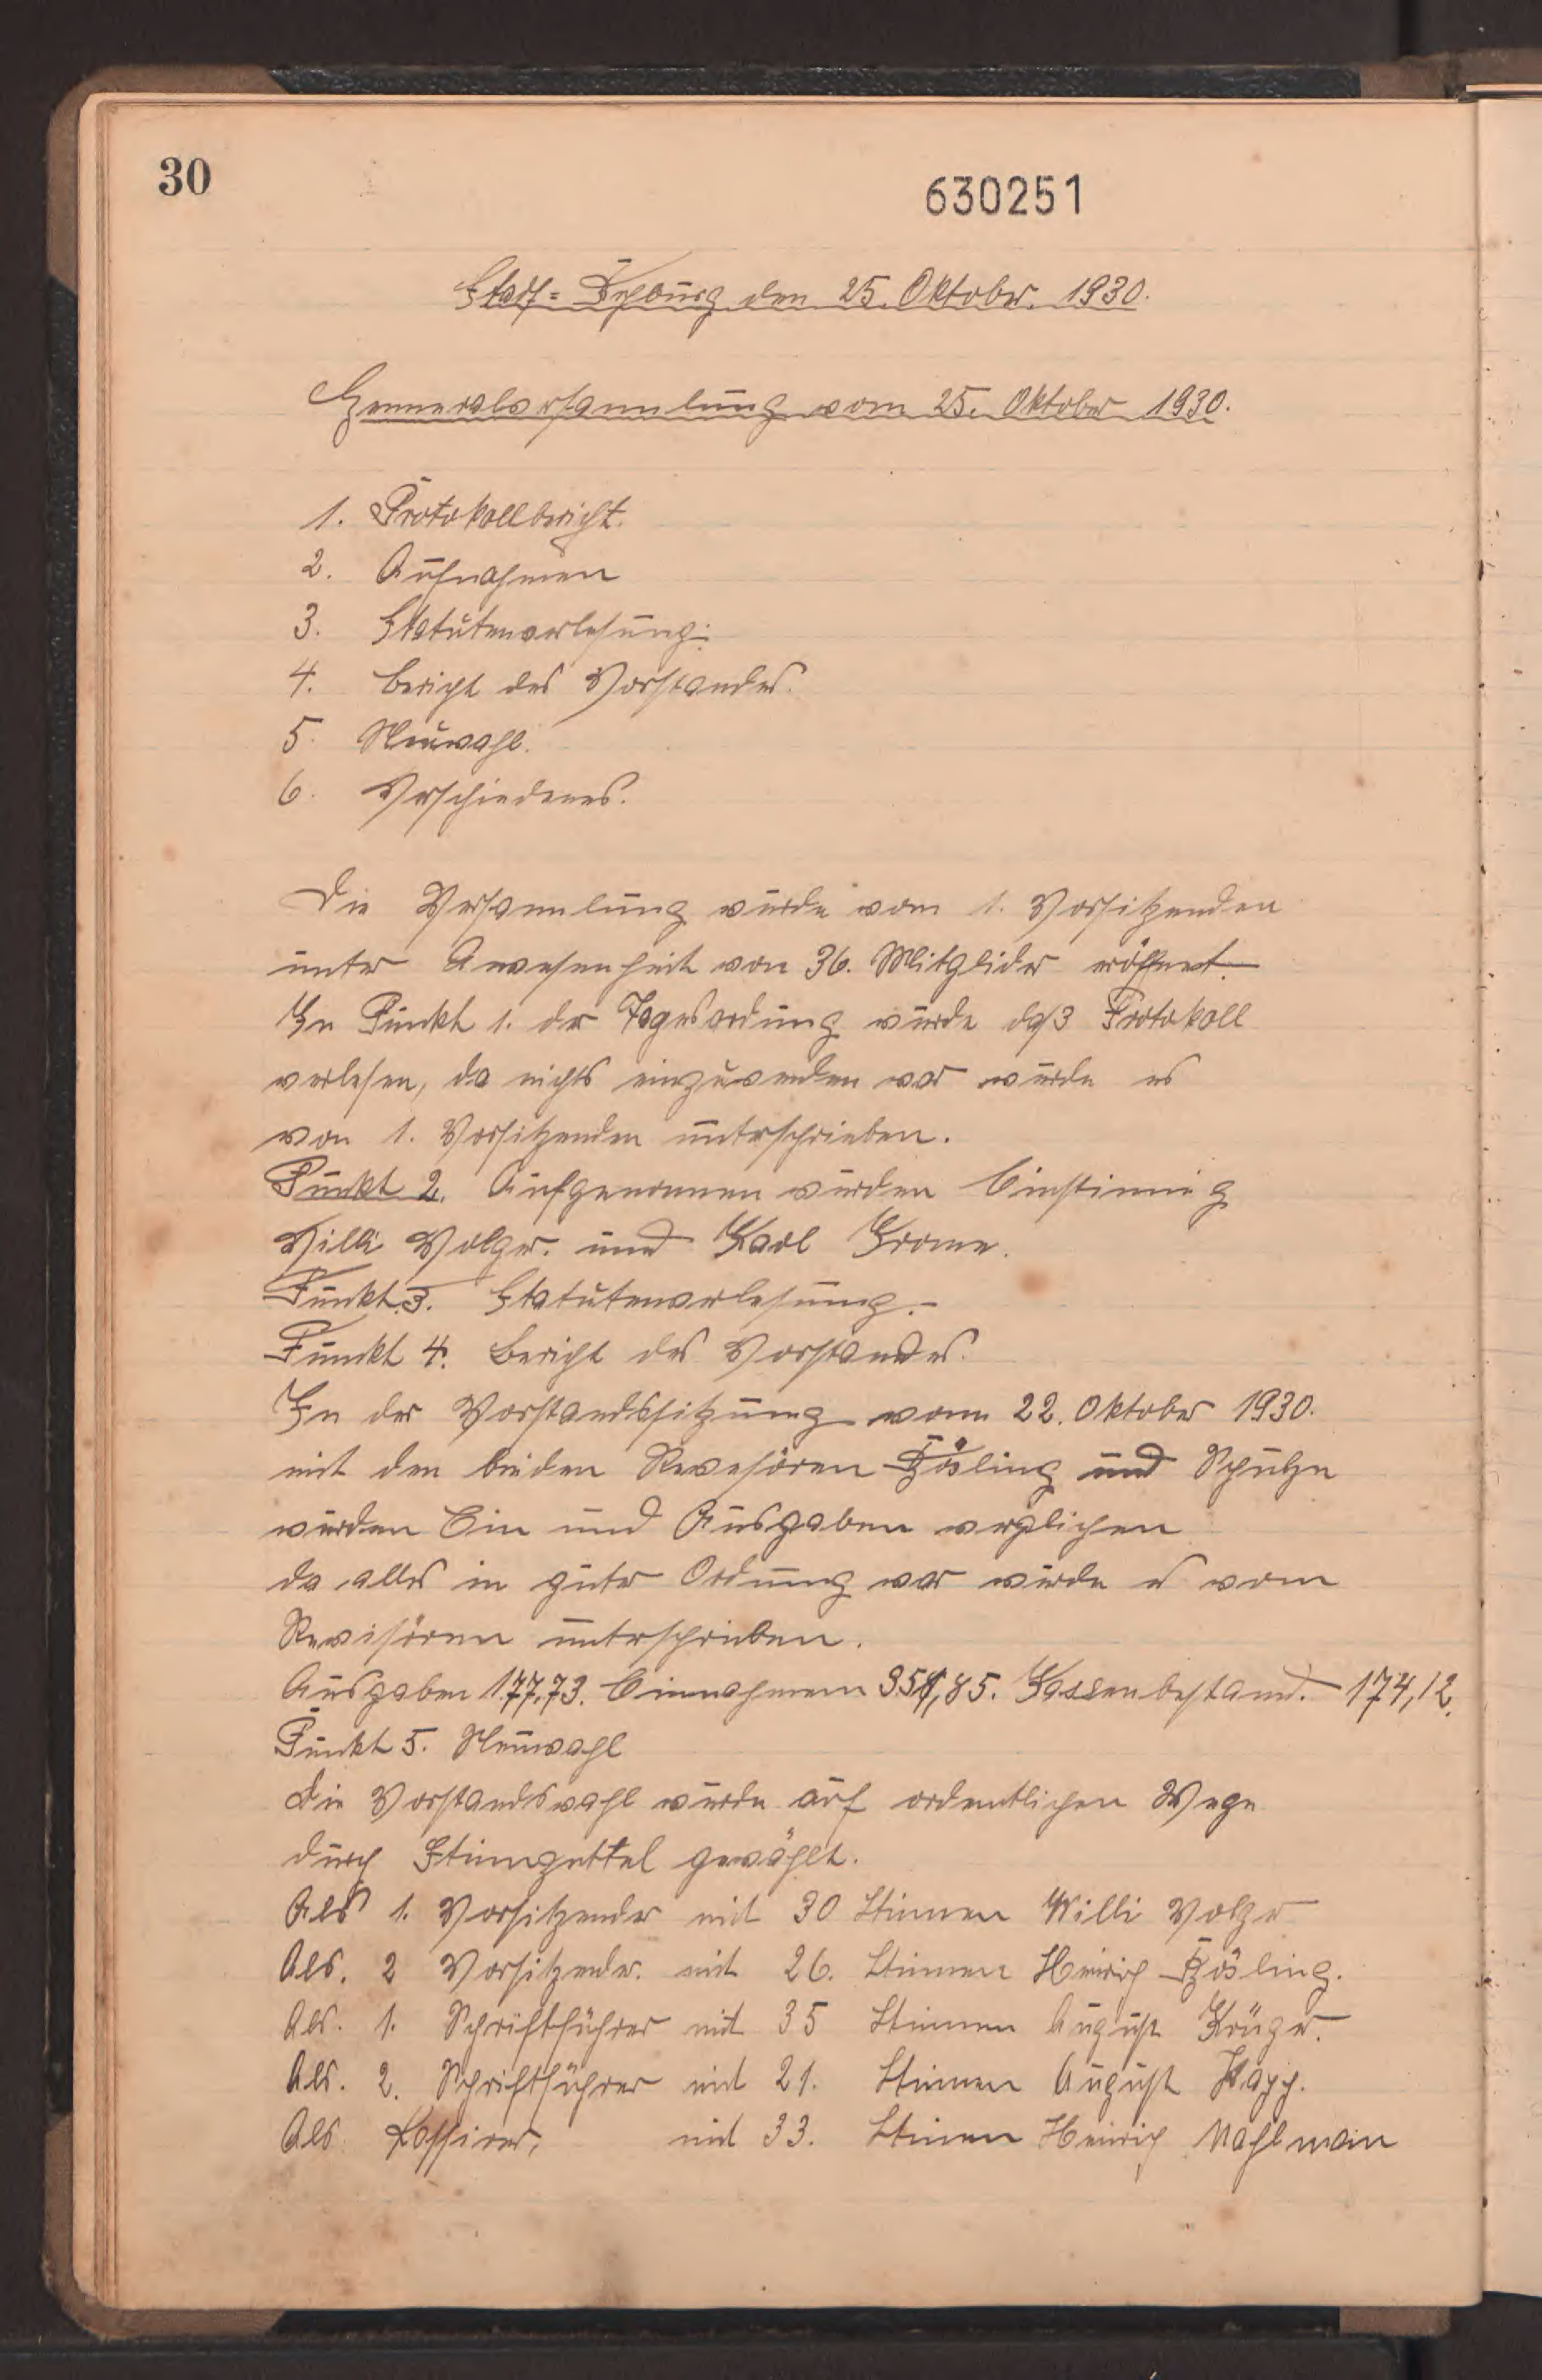 30
630251
Stadt-Rehburg den 25. Oktober. 1930.
Genneralversammlung vom 25. Oktober 1930.
1. Protokollbericht.
2. Aufnahmen
3. Statutenverlesung.
4. Bericht des Vorstandes.
5. Neuwahl.
6. Verschiedenes.
Die Versammlung wurde vom 1. Vorsitzenden
unter Anwesenheit von 36. Mitglider eröffnet.
In Punkt 1. der Tagesordung wurde daß Protokoll
verlesen, da nichts einzuwenden war wurde es
von 1. Vorsitzenden unterschrieben.
Punkt 2. Aufgenommen wurden Einstimmig
Willi Volger. und Karl Krome.
Punkt.3. Statutenverlesung.-
Punkt 4. Bericht des Vorstandes.
In der Vorstandssitzung vom 22. Oktober 1930.
mit den beiden Revesören Bösling und Schulze
wurden Ein und Ausgaben verglichen
da alles in guter Ordnung war wurde es vom
Revisören unterschrieben.
Ausgaben 177,73. Einnahmen 351,85. Kassenbestand. 174,12.
Punkt 5. Neuwahl
Die Vorstandswahl wurde auf ordentlichen Wege
durch Stimmzettel gewählt.
Als 1. Vorsitzender mit 30 Stimmen Willi Volger
Als. 2 Vorsitzender. mit 26. Stimmen Heinrich Bösling.
Als. 1. Schriftführer mit 35 Stimmen August Kröger.
Als. 2. Schriftführer mit 21. Stimmen August
Als Kassirer, mit 33. Stimmen Heinrich Mahlmann